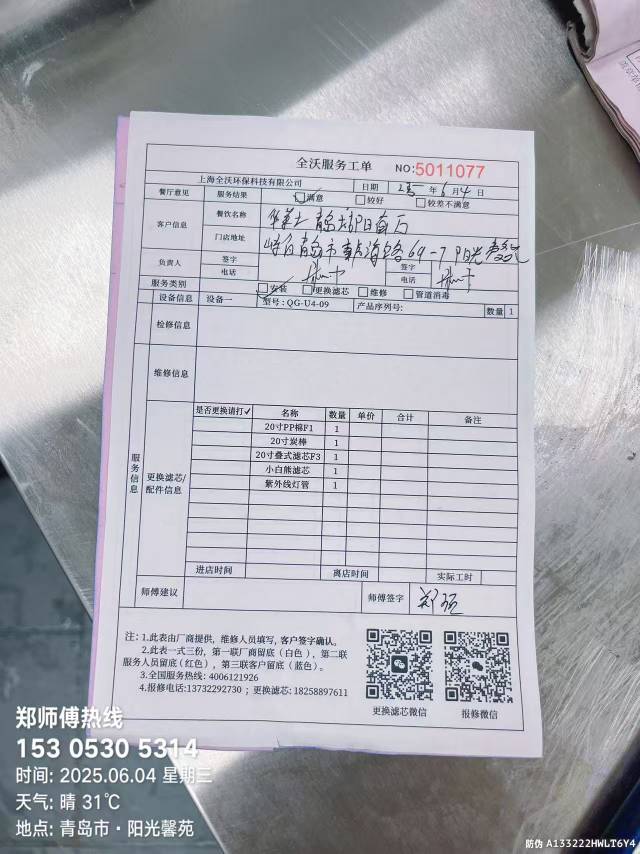 全沃服务工单 NO:5011077
上海全沃环保科技有限公司 日期 年 6 月 4 日
餐厅意见 服务结果 满意 较好 较差不满意
客户信息 餐饮名称
门店地址 青岛市 路 69-7 阳光
负责人 签字 签字
电话 电话
服务类别 安装 更换滤芯 维修 管道消毒
设备信息 设备一 型号: QG-U4-09 产品序列号: 数量 1
检修信息
维修信息
服务信息
更换滤芯/配件信息
是否更换请打✓ 名称 数量 单价 合计 备注
20寸PP棉F1 1
20寸炭棒 1
20寸叠式滤芯F3 1
小白熊滤芯 1
紫外线灯管 1
进店时间 离店时间 实际工时
师傅建议 师傅签字 郑
注: 1.此表由厂商提供, 维修人员填写, 客户签字确认。
2.此表一式三份, 第一联厂商留底(白色), 第二联
服务人员留底(红色), 第三联客户留底(蓝色)。
3.全国服务热线: 4006121926
4.报修电话:13732292730 ; 更换滤芯: 18258897611
更换滤芯微信 报修微信
郑师傅热线
153 0530 5314
时间: 2025.06.04 星期三
天气: 晴 31℃
地点: 青岛市·阳光馨苑
防伪 A133222HWLT6Y4